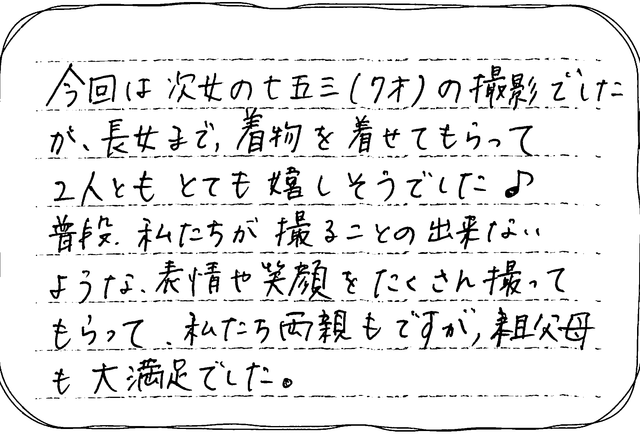 今回は次女の七五三(7才)の撮影でした
が、長女まで、着物を着せてもらって
2人ともとても嬉しそうでした♪
普段、私たちが撮ることの出来ない
ような、表情や笑顔をたくさん撮って
もらって、私たち両親もですが、祖父母
も大満足でした。